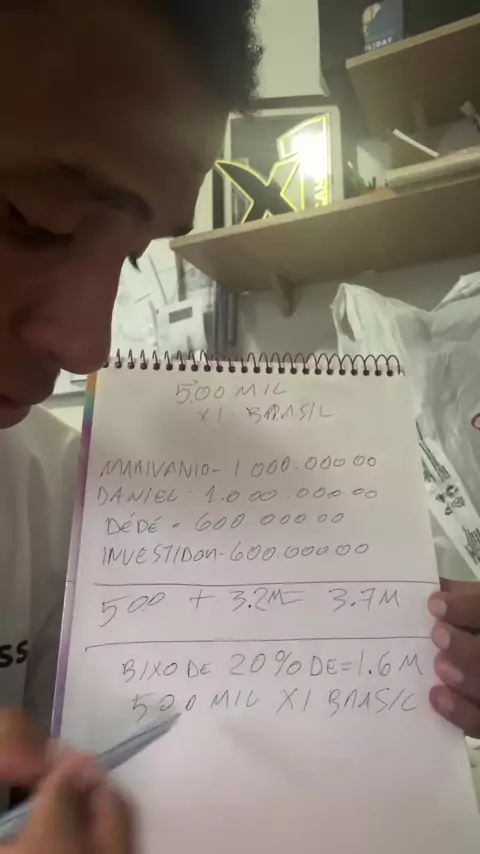 LIDAY
X1
500 MIL
X1 - BRASIL
MARIVANIO - 1 000.000 00
DANIEL - 1.000.000.00
DÉDÉ = 600 000 00
INVESTIDOR - 600.000 00
500 + 3.2M = 3.7M
BIXO DE 20% DE = 1.6 M
500 MIL X1 BRASIL
SS